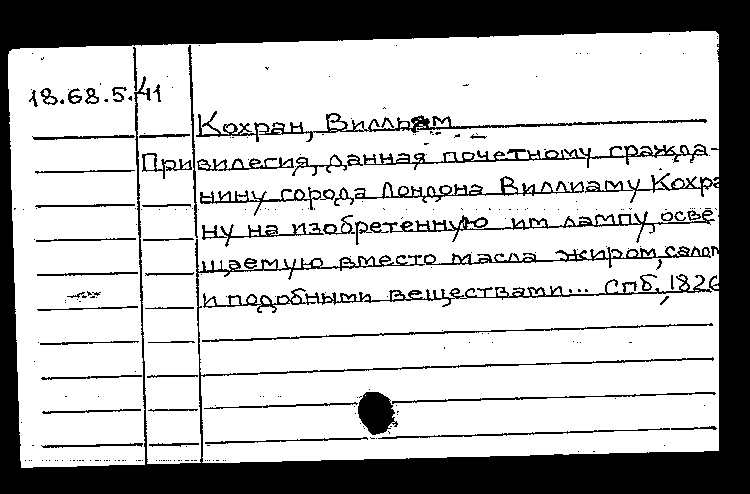 18.68.5.41
Кохран, Вилльям
Привилегия, данная почетному гражда-
нину города Лондона Виллиаму Кохра
ну на изобретенную им лампу, осве-
щаемую вместо масла жиром, салом
и подобными веществами... Спб., 1826